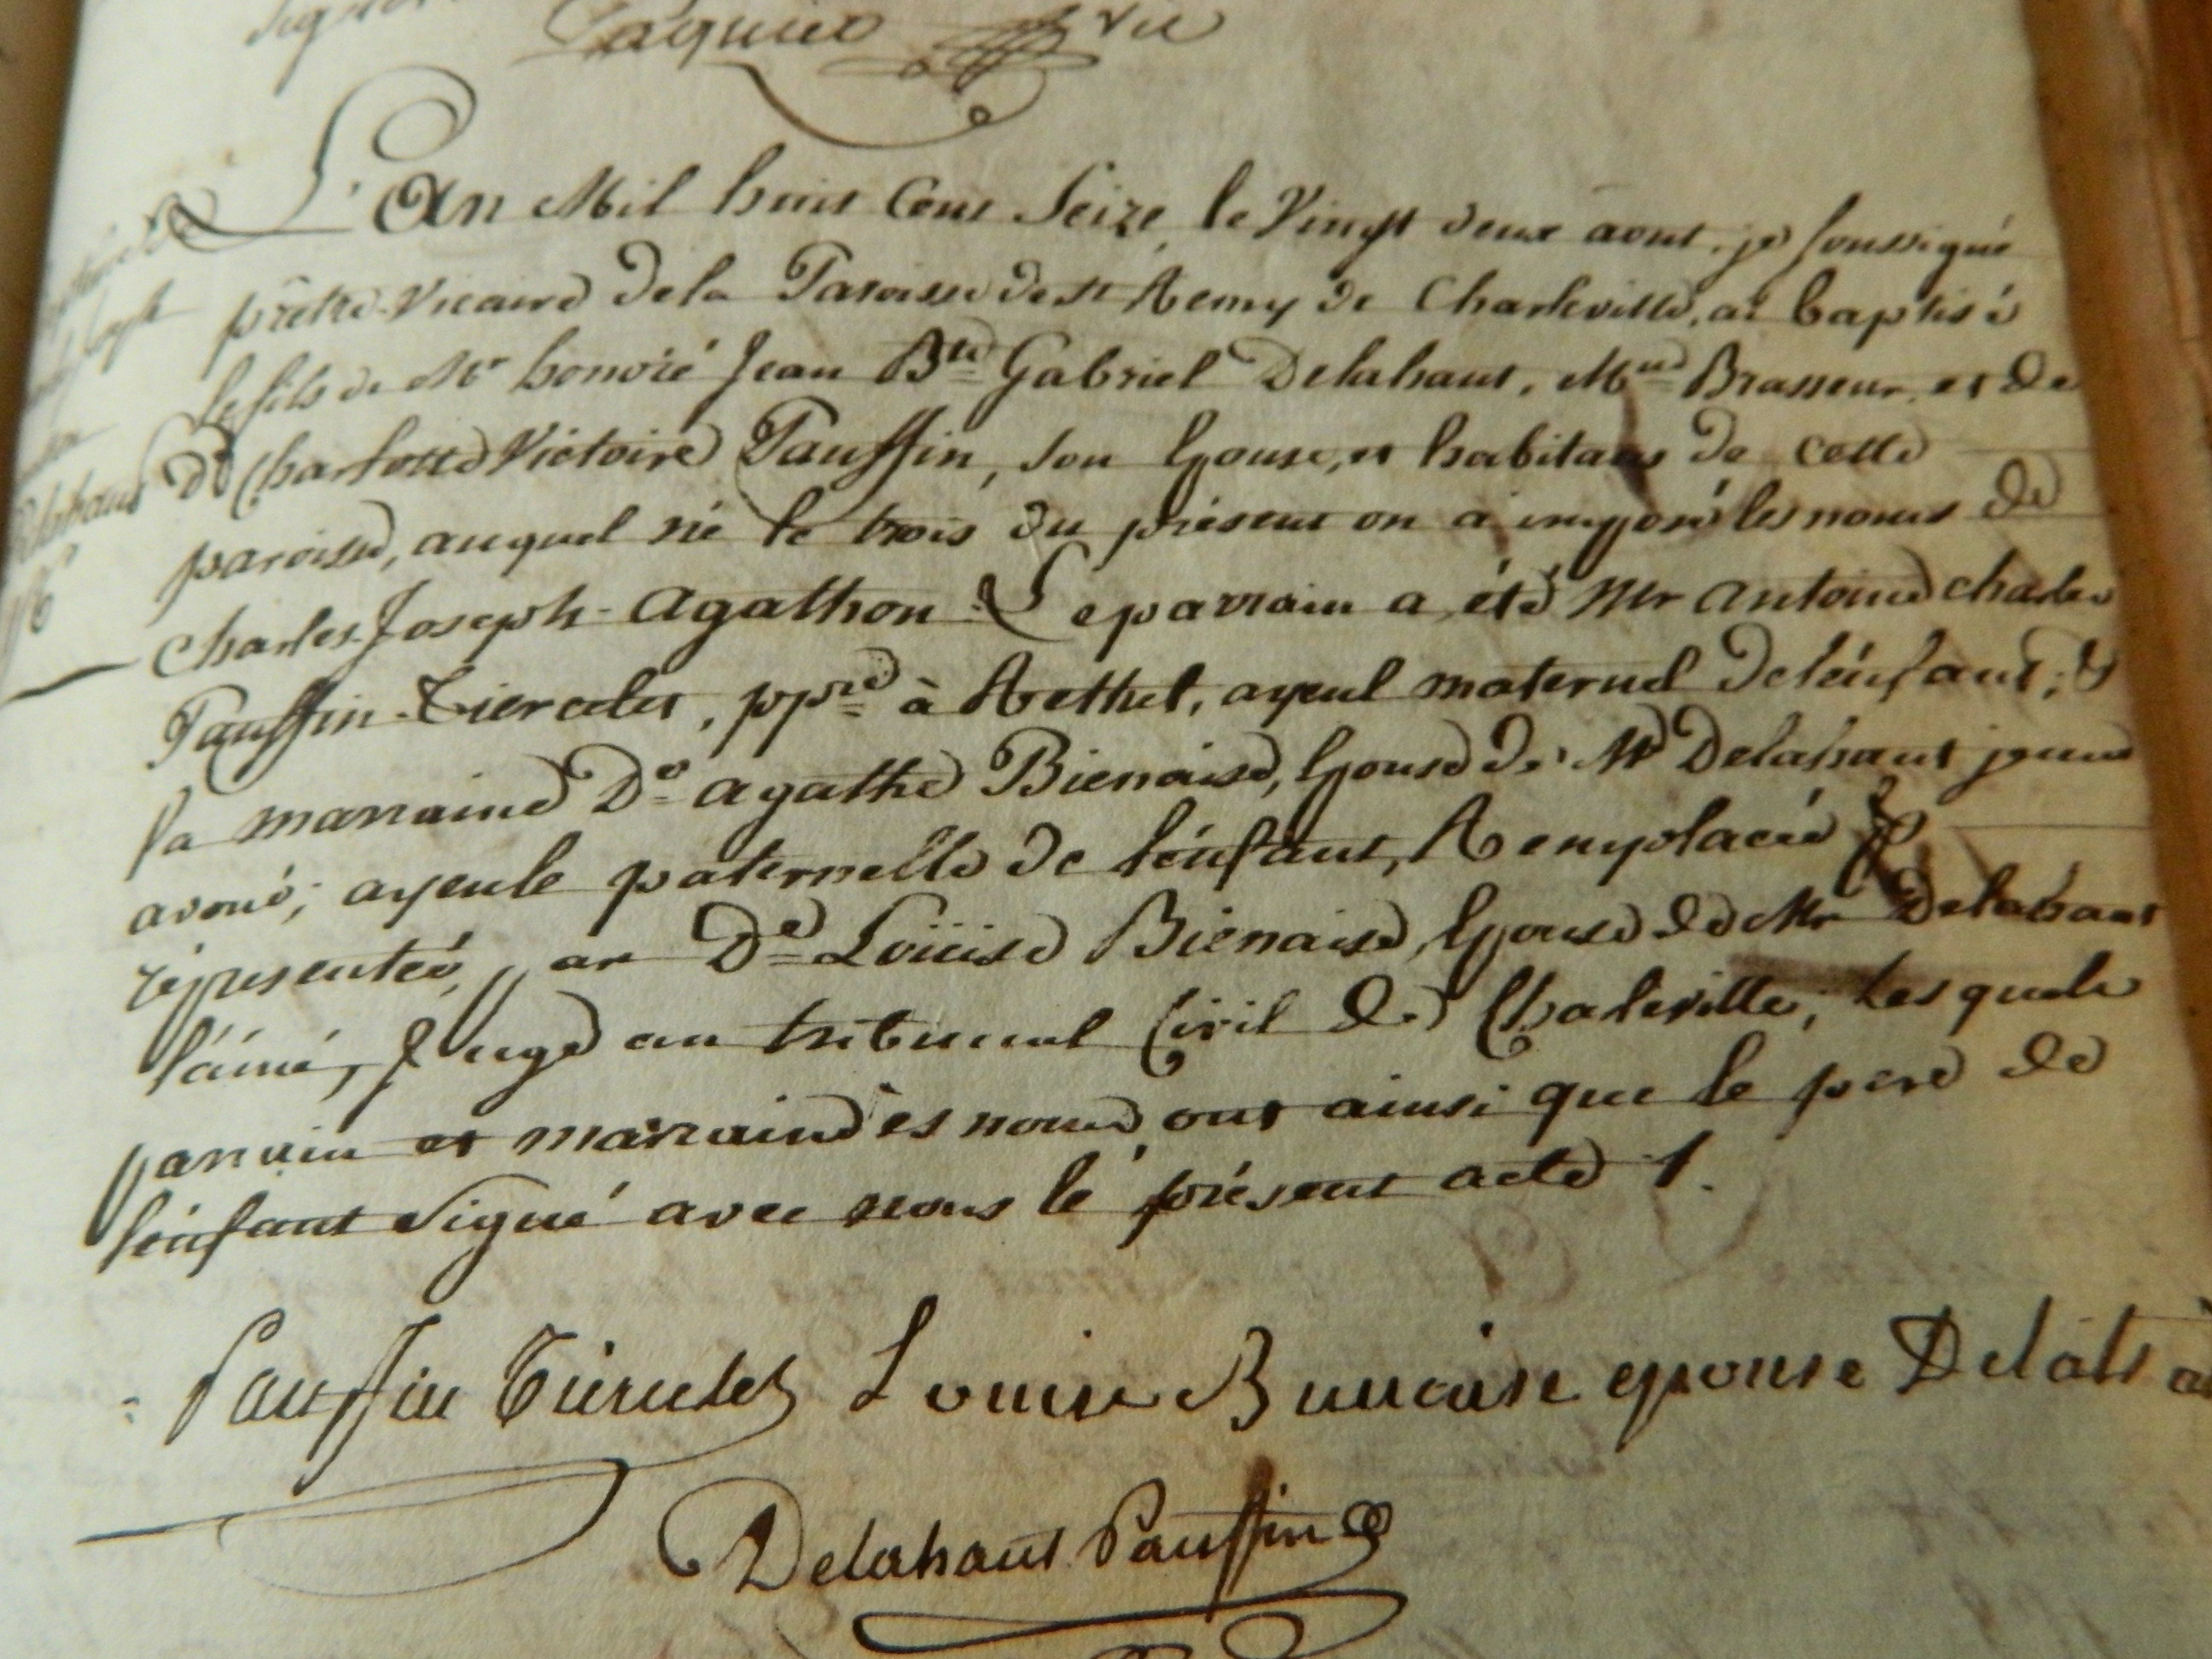 Paquier vic
L'An Mil huit Cent Seize, le Vingt deux aout, je soussigné
prêtre-Vicaire de la Paroisse de St Remy de Charleville, ai baptisé
le fils de Mr honoré Jean Bte Gabriel Delahaut, Md Brasseur, et de
De Charlotte Victoire Pauffin, son Epouse, et habitans de cette
paroisse, auquel né le trois du présent on a imposé les noms de
Charles-Joseph-Agathon. Le parrain a été Mr Antoine Charles
Pauffin-Tiercelet, ppre à Rethel, ayeul maternel de l'énfant; &
la marraine De Agathe Bienaise, Epouse de Mr Delahaut jeune
avoué; ayeule paternelle de l'énfant, Remplacée &
réprésentée, par De Loüise Bienaise, Epouse de Mr Delahaut
l'ainé, Juge au tribunal Civil de Charleville; Lesquels
parrain et marraine ès noms, ont ainsi que le pere de
l'énfant signé avec nous le présent acte /.
Pauffin Tiercelet Louise Bienaise epouse Delah
Delahaut Pauffin
Delahaut